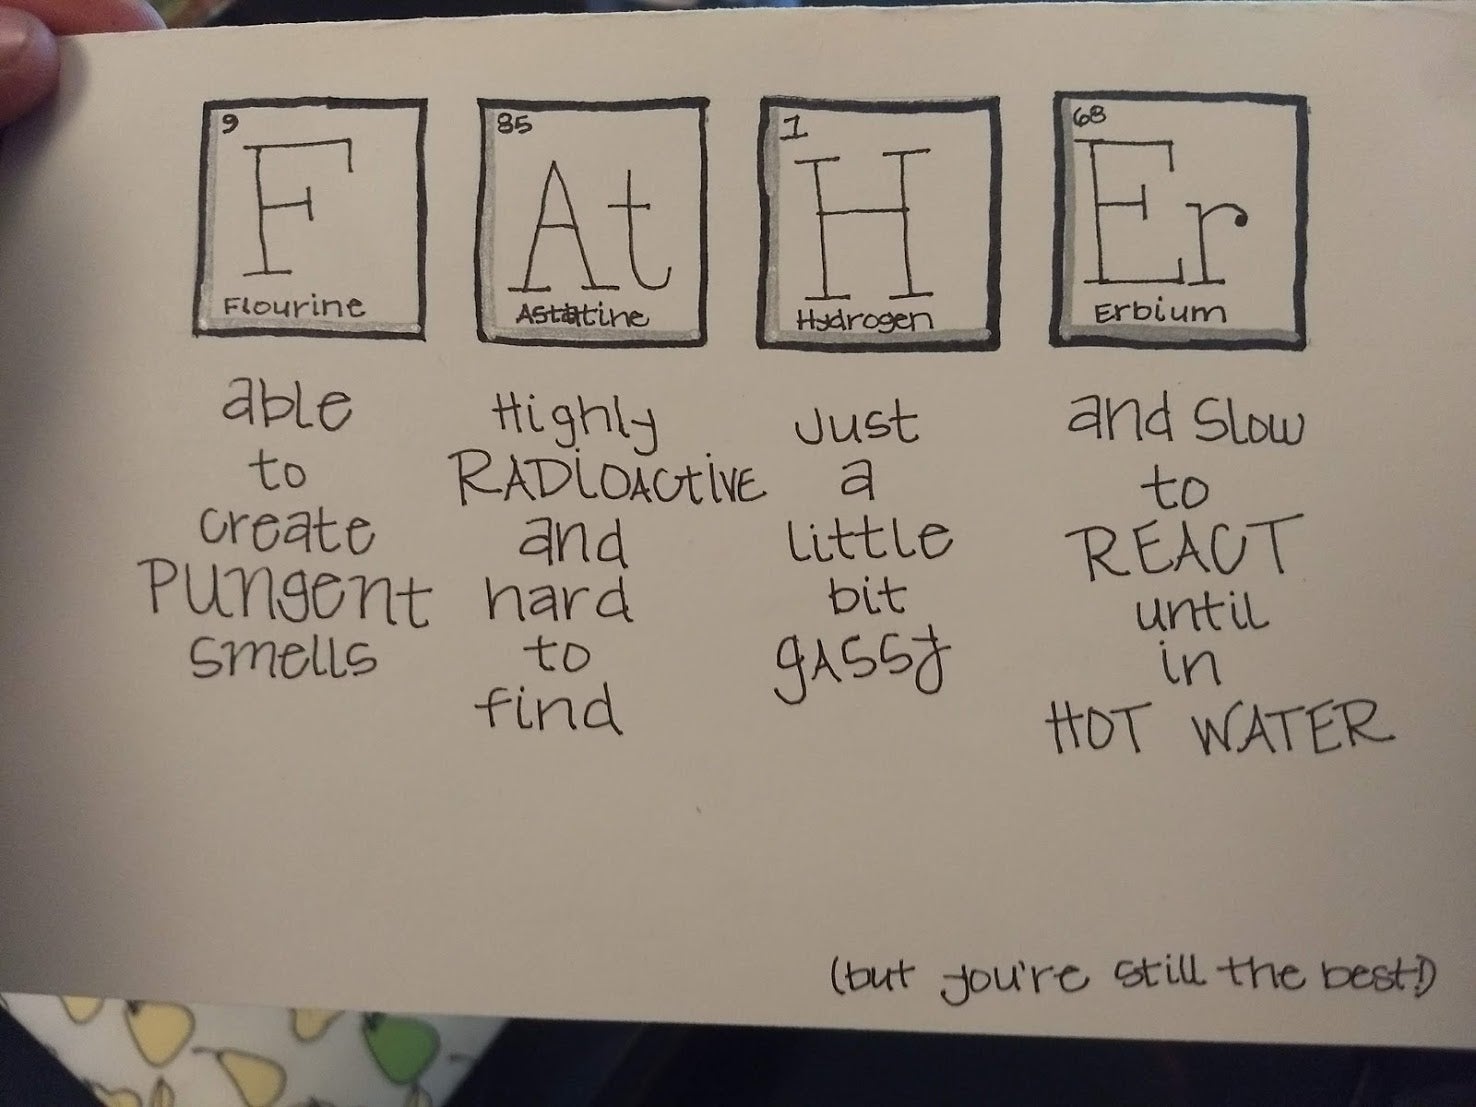 9
F
Flourine
able
to
create
PUNgent
smells
85
At
Astatine
Highly
RADiOACtiVE
and
hard
to
find
1
H
Hydrogen
Just
a
little
bit
gASSy
68
Er
Erbium
and Slow
to
REACT
until
in
HOT WATER
(but you're still the best!)